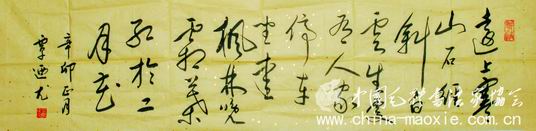 遠上寒
山石徑
斜白
雲生處
有人家
停車
坐愛
楓林晚
霜葉
紅於二
月花
辛卯正月
中国毛笔书法家协会
www.china-maoxie.com